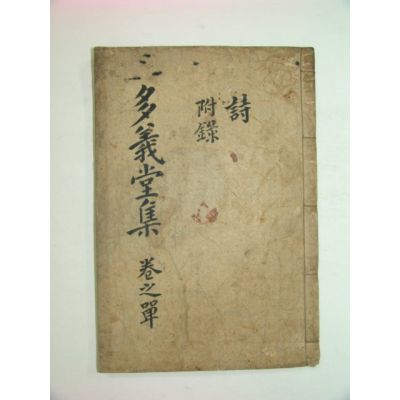 詩
附錄
多義堂集 卷之單